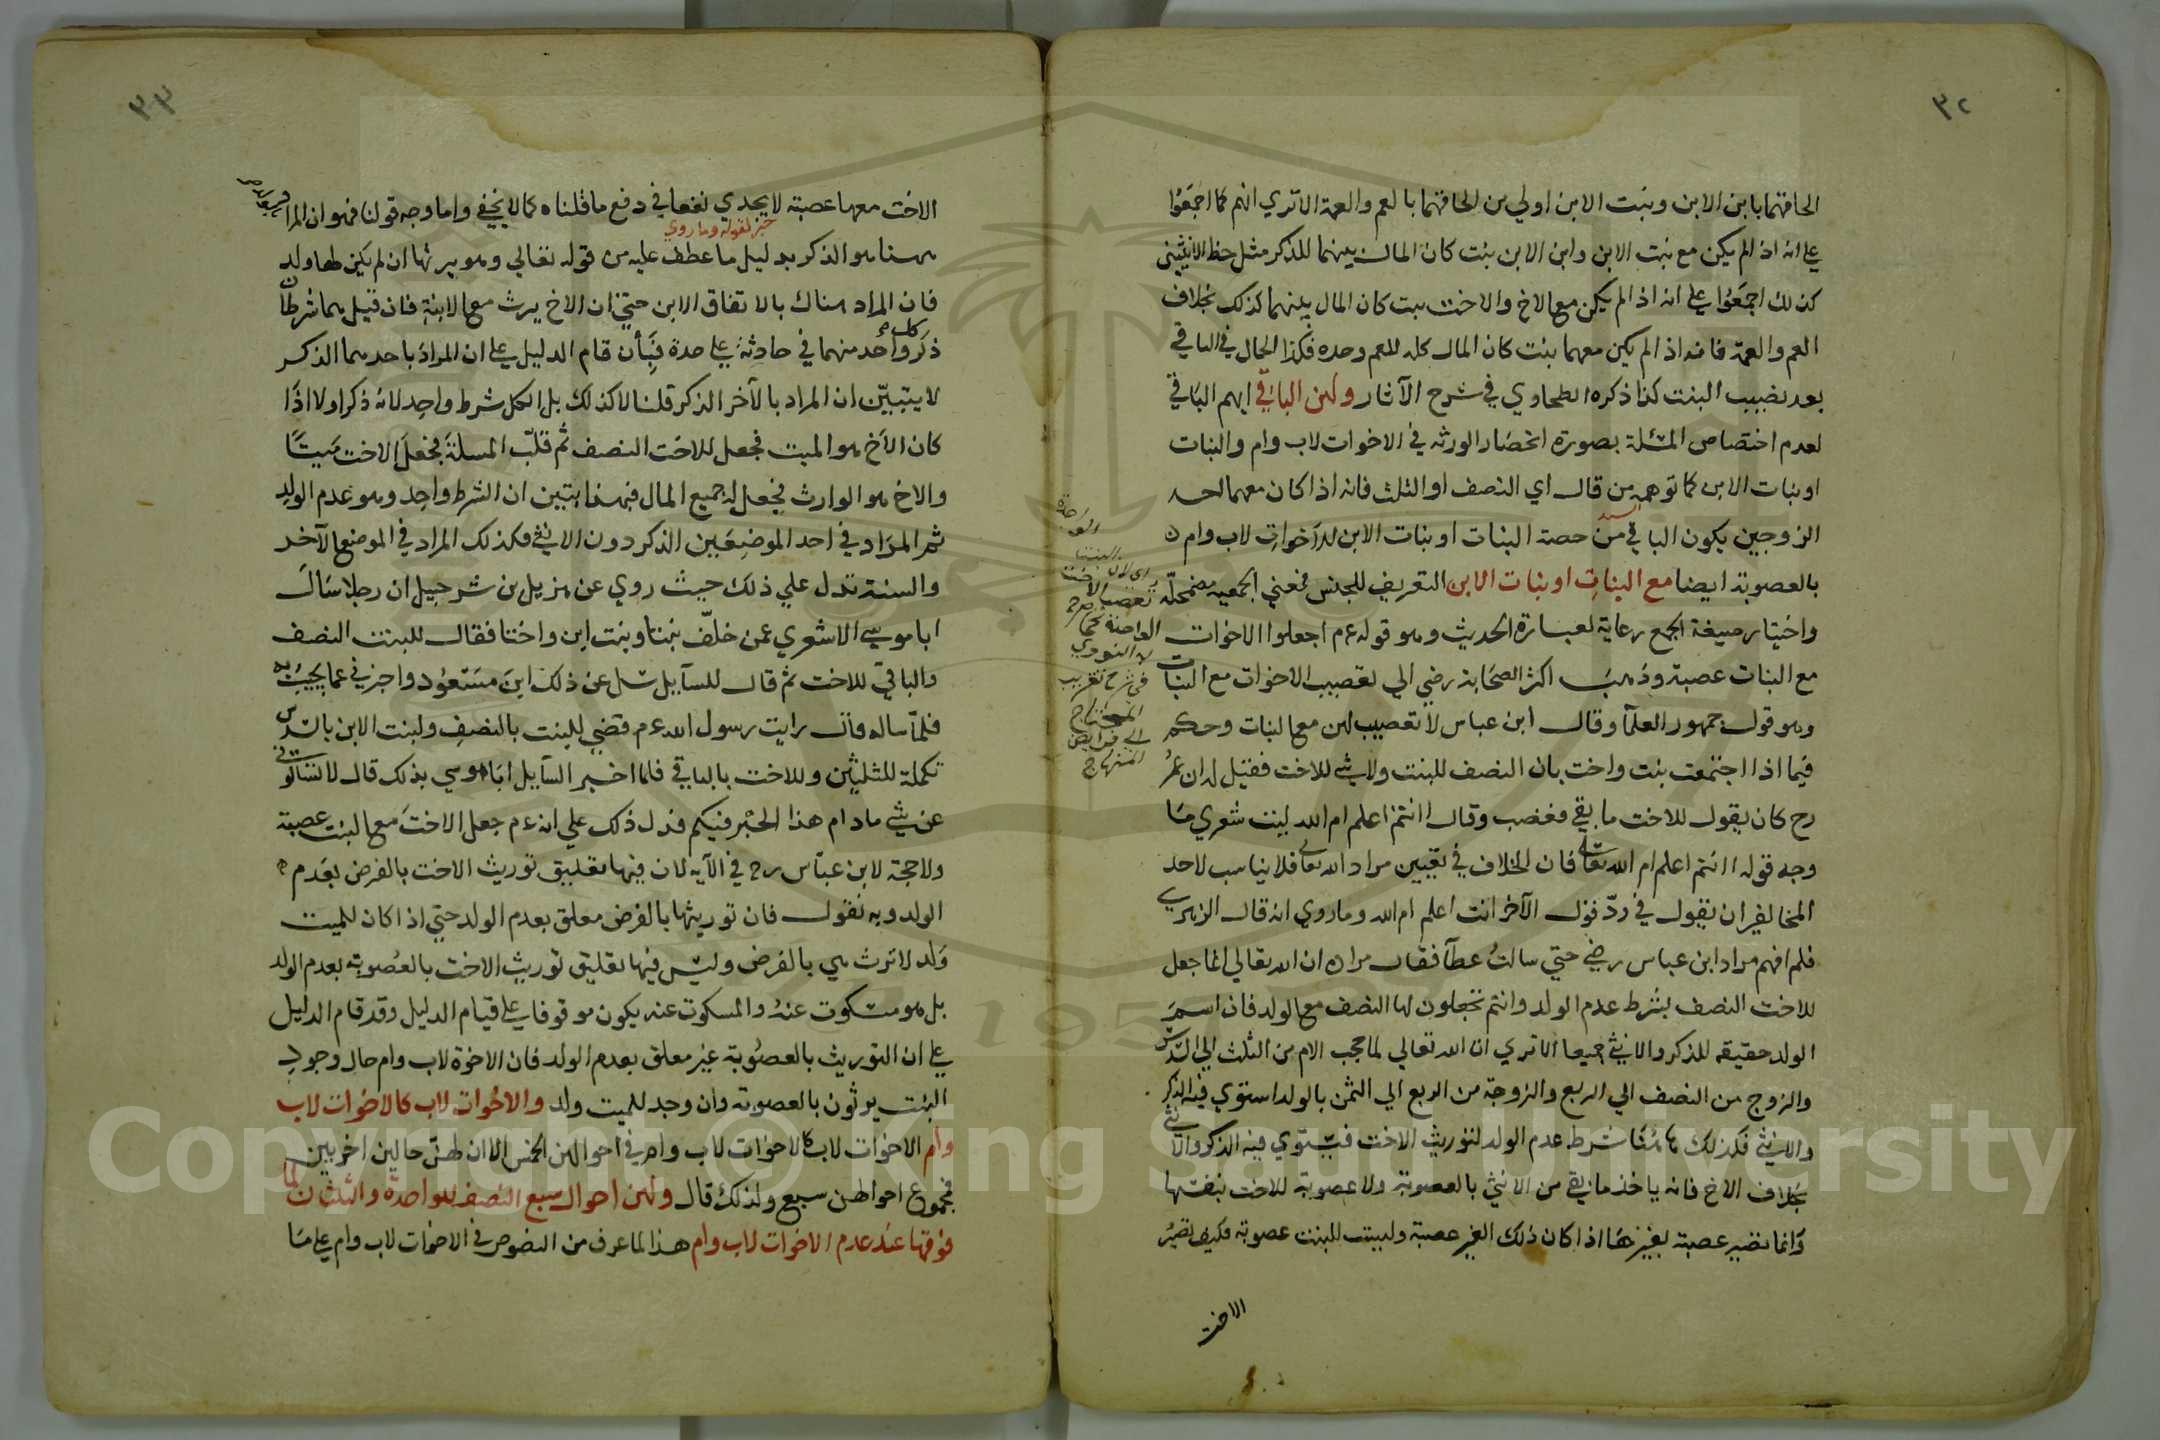 ٣٢
الحاقهما بابن الابن وبنت الابن اولي من الحاقهما بالعم والعمة الا تري انهم كما اجمعوا
علي انه اذا لم يكن مع بنت الابن وابن الابن بنت كان المال بينهما للذكر مثل حظ الانثيين
كذلك اجمعوا علي انه اذا لم يكن مع الاخ والاخت بنت كان المال بينهما كذلك بخلاف
العم والعمة فانه اذا لم يكن معهما بنت كان المال كله للعم وحده فكذا الحال في الباقي
بعد نصيب البنت كذا ذكره الطحاوي في شرح الآثار ولهن الباقي ابهم الباقي
لعدم اختصاص المسئلة بصورة انحصار الورثه في الاخوات لاب وام والبنات
او بنات الابن كما توهمه من قال اي النصف او الثلث فانه اذا كان معهما احد
الزوجين يكون الباقي من حصة البنات او بنات الابن للاخوات لاب وام
بالعصوبة ايضا مع البنات او بنات الابن التعريف للجنس فمعني الجمعيه مضمحلة
واختيار صيغة الجمع رعاية لعبارة الحديث وهو قوله عم اجعلوا الاخوات
مع البنات عصبة وذهب اكثر الصحابة رضي الي تعصيب الاخوات مع البنات
وهو قول جمهور العلمآ وقال ابن عباس لا تعصيب لهن مع البنات وحكم
فيما اذا اجتمعت بنت واخت بان النصف للبنت ولا شي للاخت فقيل له ان عمر
رح كان يقول للاخت ما بقي فغضب وقال اانتم اعلم ام الله ليت شعري ما
وجه قوله اانتم اعلم ام الله تعالي فان الخلاف في تعيين مراد الله تعالي فلا يناسب لاحد
المخالفين ان يقول في ردّ قول الآخر انت اعلم ام الله وما روي انه قال الزهري
فلم افهم مراد ابن عباس رضي حتي سالت عطآ فقال مراده ان الله تعالي انما جعل
للاخت النصف بشرط عدم الولد وانتم تجعلون لها النصف مع الولد فان اسم
الولد حقيقه للذكر والانثي جميعا الا تري ان الله تعالي لما حجب الام من الثلث الي السدس
والزوج من النصف الي الربع والزوجة من الربع الي الثمن بالولد استوي فيه الذكر
والانثي فكذلك هاهنا شرط عدم الولد لتوريث الاخت فيستوي فيه الذكر والانثي
بخلاف الاخ فانه ياخذ ما بقي من الانثي بالعصوبة ولا عصوبة للاخت بنفسها
وانما تصير عصبة بغيرها اذا كان ذلك الغير عصبة وليست للبنت عصوبة فكيف تصير
الاخت
الواحدة
تعصب الاخت
النووي
في شرح
المحتاج
المنهاج
٣٣
الاخت معها عصبة لا يجدي نفعا في دفع ما قلناه كما لا يخفي واما وجه قولنا فهو ان المراد
خبر لقوله وما روي
ههنا هو الذكر بدليل ما عطف عليه من قوله تعالي وهو يرثها ان لم يكن لها ولد
فان المراد هناك بالاتفاق الابن حتي ان الاخ يرث مع الابنة فان قيل هما شرطان
ذكر كل واحد منهما في حادثة علي حدة فبأن قام الدليل علي ان المراد باحدهما الذكر
لا يتبيّن ان المراد بالآخر الذكر قلنا لا كذلك بل الكل شرط واحد لانه ذكر اولا اذا
كان الاخ هو الميت فجعل للاخت النصف ثم قلب المسلة فجعل الاخت ميتا
والاخ هو الوارث فجعل له جميع المال فبهذا يتبين ان الشرط واحد وهو عدم الولد
ثم المراد في احد الموضعين الذكر دون الانثي فكذلك المراد في الموضع الآخر
والسنة تدل علي ذلك حيث روي عن هزيل بن شرحبيل ان رجلا سال
ابا موسي الاشعري عمن خلّف بنتا وبنت ابن واختا فقال للبنت النصف
والباقي للاخت ثم قال للسآيل سل عن ذلك ابن مسعود واخبرني عما يجيب به
فلمّا ساله قال رايت رسول الله عم قضي للبنت بالنصف ولبنت الابن بالسدس
تكملة للثلثين وللاخت بالباقي فلما اخبر السآيل ابا موسي بذلك قال لا تسالوني
عن شي ما دام هذا الحبر فيكم فدل ذلك علي انه عم جعل الاخت مع البنت عصبة
ولا حجة لابن عبّاس رح في الآيه لان فيها تعليق توريث الاخت بالفرض بعدم
الولد وبه نقول فان توريثها بالفرض معلق بعدم الولد حتي اذا كان للميت
ولد لا ترث هي بالفرض وليس فيها تعليق توريث الاخت بالعصوبة بعدم الولد
بل هو مسكوت عنه والمسكوت عنه يكون موقوفا علي قيام الدليل وقد قام الدليل
علي ان التوريث بالعصوبة غير معلق بعدم الولد فان الاخوة لاب وام حال وجود
البنت يرثون بالعصوبة وان وجد للميت ولد والاخوات لاب كالاخوات لاب
وام الاخوات لاب كالاخوات لاب وام في احوالهن الخمس الا ان لهنّ حالين اخريين
فمجموع احوالهن سبع ولذلك قال ولهن احوال سبع النصف للواحدة والثلثان لما
فوقها عند عدم الاخوات لاب وام هذا لما عرف من النصوص في الاخوات لاب وام علي ما